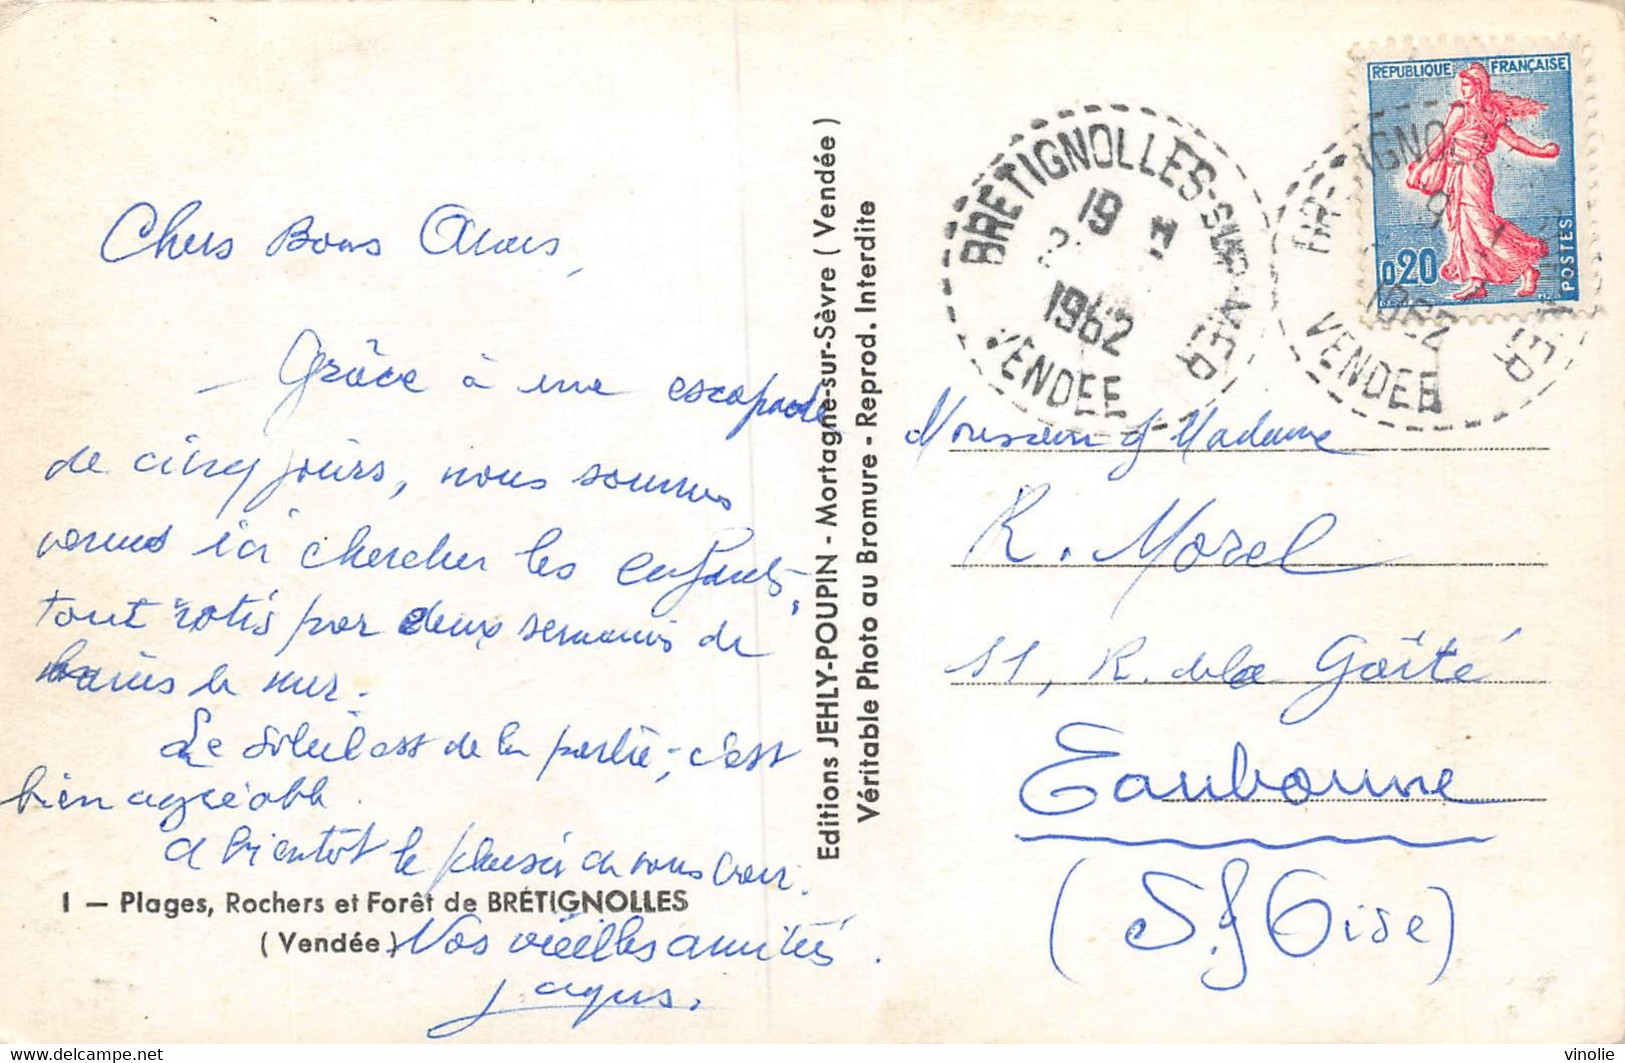 Chers Bons Amis,
— Grâce à une escapade
de cinq jours, nous sommes
venus ici chercher les enfants,
tout rotis par deux semaines de
bains de mer.
Le soleil est de la partie, c'est
bien agréable.
A bientôt le plaisir de vous voir.
Nos vieilles amitiés.
Jacques.
1 — Plages, Rochers et Forêt de BRÉTIGNOLLES
(Vendée)
Editions JEHLY-POUPIN - Mortagne-sur-Sèvre (Vendée)
Véritable Photo au Bromure - Reprod. Interdite
BRETIGNOLLES-SUR-MER
19
1962
VENDEE
REPUBLIQUE FRANÇAISE
0,20
POSTES
1962
VENDEE
Monsieur & Madame
R. Morel
11, R. de la Gaîté
Eaubonne
(S. & Oise)
www.delcampe.net
vinolie